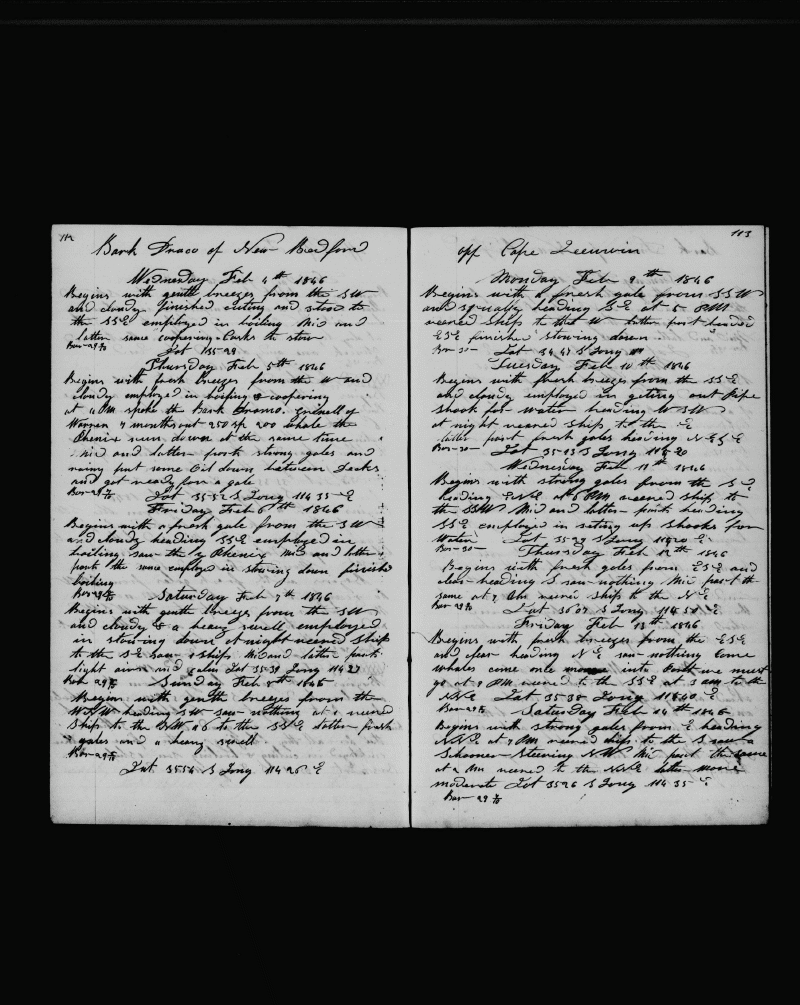 112
Bark Draco of New Bedford
Wednesday Feb 4th 1846
Begins with gentle breezes from the SW
and cloudy finished cuting and stood to
the SSE employed in boiling Mid and
latter same coopering Casks to stow
Bar 29
Lat 35-29
Thursday Feb 5th 1846
Begins with fresh breezes from the W and
cloudy employed in boiling & coopering
at 4 PM spoke the Bark of
Warren 7 months out 250 sp 200 whale the
Phenix run down at the same time
Mid and latter part strong gales and
rainy put some Oil down between Decks
and got ready for a gale
Bar 29 Lat 35-52 S Long 114 35 E
Friday Feb 6th 1846
Begins with a fresh gale from the SW
and cloudy heading SSE employed in
boiling saw the Phenix Mid and latter
part the same employed in stowing down finished
boiling
Bar 29 Saturday Feb 7th 1846
Begins with gentle breezes from the SW
and cloudy & a heavy swell employed
in stowing down at night veered ship
to the SE saw 2 ships Mid and latter part
light airs and calm Lat 35-39 Long 114 27
Bar 29 Sunday Feb 8th 1846
Begins with gentle breezes from the
WNW heading SW saw nothing at veered
Ship to the NW at 6 to the SSE latter fresh
gales and a heavy swell
Bar 29
Lat 35 54 S Long 114 26 E
113
off Cape Leeuwin
Monday Feb 9th 1846
Begins with a fresh gale from SSW
and squaly heading SE at 5 PM
veered ship to the W latter part headed
ESE finished stowing down
Bar 30 Lat 34 47 S Long
Tuesday Feb 10th 1846
Begins with fresh breezes from the SSE
and cloudy employed in geting out Pipe
Shook for water heading WSW
at night veered ship to the E
latter part fresh gales heading
Bar 30 Lat 35-23 S Long 20
Wednesday Feb 11th 1846
Begins with strong gales from the S
heading ENE at 6 PM veered ship to
the SSW Mid and latter part heading
SSE employed in seting up shooks for
Water Lat 35 29 S Long 20 E
Bar 30 Thursday Feb 12th 1846
Begins with fresh gales from ESE and
clear heading S saw nothing Mid part the
same at 7 AM veered ship to the NE
Bar 29 Lat 36 07 S Long 114 50 E
Friday Feb 13th 1846
Begins with fresh breezes from the ESE
and clear heading NE saw nothing Come
whales come one more into Port we must
go at 7 PM veered to the SSE at 3 AM to the
NNE Lat 35 38 Long E
Bar 29 Saturday Feb 14th 1846
Begins with strong gales from E heading
NNE at 7 PM veered ship to the S saw a
Schooner Steering NW Mid part the same
at 2 AM veered to the NNE latter more
moderate Lat 35 26 S Long 114 35 E
Bar 29